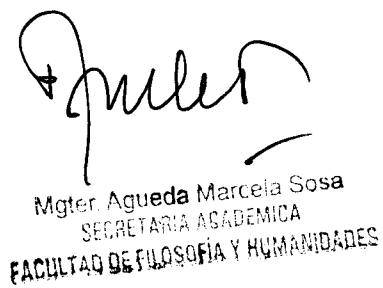 Mgter. Agueda Marcela Sosa
SECRETARIA ACADEMICA
FACULTAD DE FILOSOFÍA Y HUMANIDADES